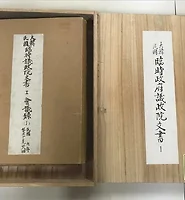 大韓民國 臨時政府議政院文書 1
大韓民國 臨時議政院文書
會議錄